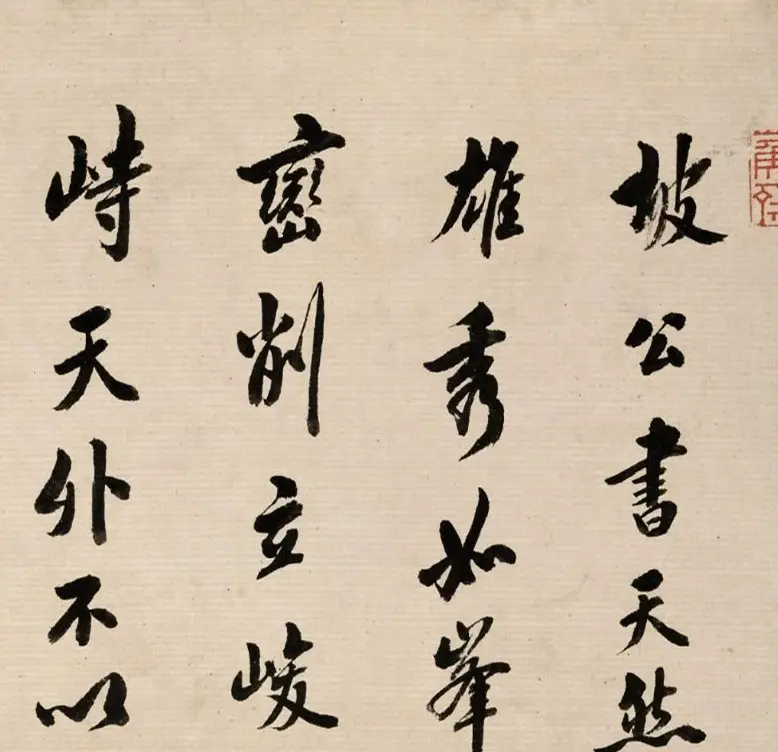 坡公書天然
雄秀如峯
巒削立峻
峙天外不以